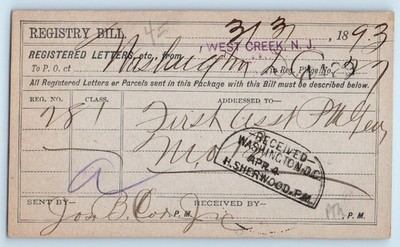 REGISTRY BILL. 3/31 1893
REGISTERED LETTERS, etc., from WEST CREEK, N. J.
To P. O. at Washington D C in Reg. Page No. 37
All Registered Letters or Parcels sent in this Package with this Bill must be described below.
REG. NO. CLASS. ADDRESSED TO—
28 First Asst PM Gen
—RECEIVED—
WASHINGTON, D.C.
APR 4
H. SHERWOOD, P.M.
a
SENT BY— RECEIVED BY—
Jos. B. Cox Jr. P. M. P. M.